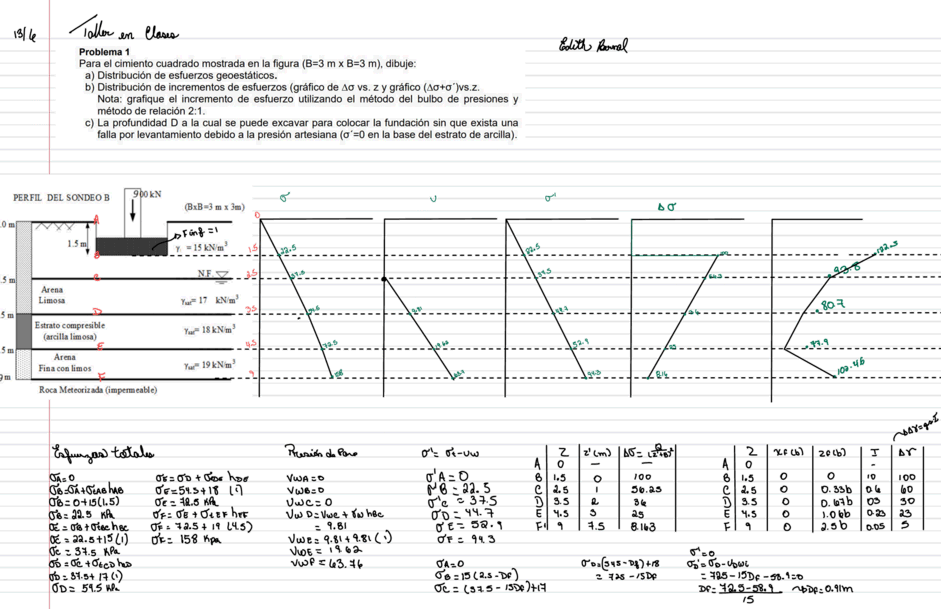 13/6
Taller en Clases
Problema 1
Para el cimiento cuadrado mostrada en la figura (B=3 m x B=3 m), dibuje:
a) Distribución de esfuerzos geoestáticos.
b) Distribución de incrementos de esfuerzos (gráfico de Δσ vs. z y gráfico (Δσ+σ´)vs.z.
Nota: grafique el incremento de esfuerzo utilizando el método del bulbo de presiones y
método de relación 2:1.
c) La profundidad D a la cual se puede excavar para colocar la fundación sin que exista una
falla por levantamiento debido a la presión artesiana (σ´=0 en la base del estrato de arcilla).
Edith
PERFIL DEL SONDEO B
900 kN
(BxB=3 m x 3m)
.0 m
A
1.5 m
γ = 15 kN/m³
B
N.F.
.5 m
C
Arena
Limosa
γsat= 17 kN/m³
5 m
D
Estrato compresible
(arcilla limosa)
γsat= 18 kN/m³
5 m
E
Arena
Fina con limos
γsat= 19 kN/m³
9 m
F
Roca Meteorizada (impermeable)
σ
U
σ'
Δσ
0
1.5
2.5
3.5
4.5
9
22.5
72.5
9.81
22.5
52.9
122.5
80.7
77.9
102.46
Esfuerzos totales
σA=0
σB=σA+σAB hAB
σB=0+15(1.5)
σB=22.5 kPa
σC=σB+σBC hBC
σC=22.5+15(1)
σC=37.5 KPa
σD=σC+σCD hCD
σD=37.5+17(1)
σD=54.5 kPa
σE=σD+σDE hDE
σE=54.5+18(1)
σE=72.5 kPa
σF=σE+σEF hEF
σF=72.5+19(4.5)
σF=158 kPa
Presión de Poro
UWA=0
UWB=0
UWC=0
UWD=UWC+γW hBC
=9.81
UWE=9.81+9.81(1)
UWE=19.62
UWF=63.76
σ'=σt-Uw
σ'A=0
σ'B=22.5
σ'C=37.5
σ'D=44.7
σ'E=52.9
σ'F=94.3
Z z'(m)
A 0 - -
B 1.5 0 100
C 2.5 1 56.25
D 3.5 2 36
E 4.5 3 25
F 9 7.5 8.163
Δσ=q∞I
Z xf(b) zo(b) I Δσ
A 0 -
B 1.5 0 0 10 100
C 2.5 0 0.33b 0.6 60
D 3.5 0 0.67b 03 30
E 4.5 0 1.0b 0.23 23
F 9 0 2.5b 0.05 5
σA=0
σB=15(2.5-DF)
σC=(37.5-15DF)+17
=725-15DF
σ'=0
=725-15DF-58.9=0
DF=72.5-58.9
15
DF=0.91m